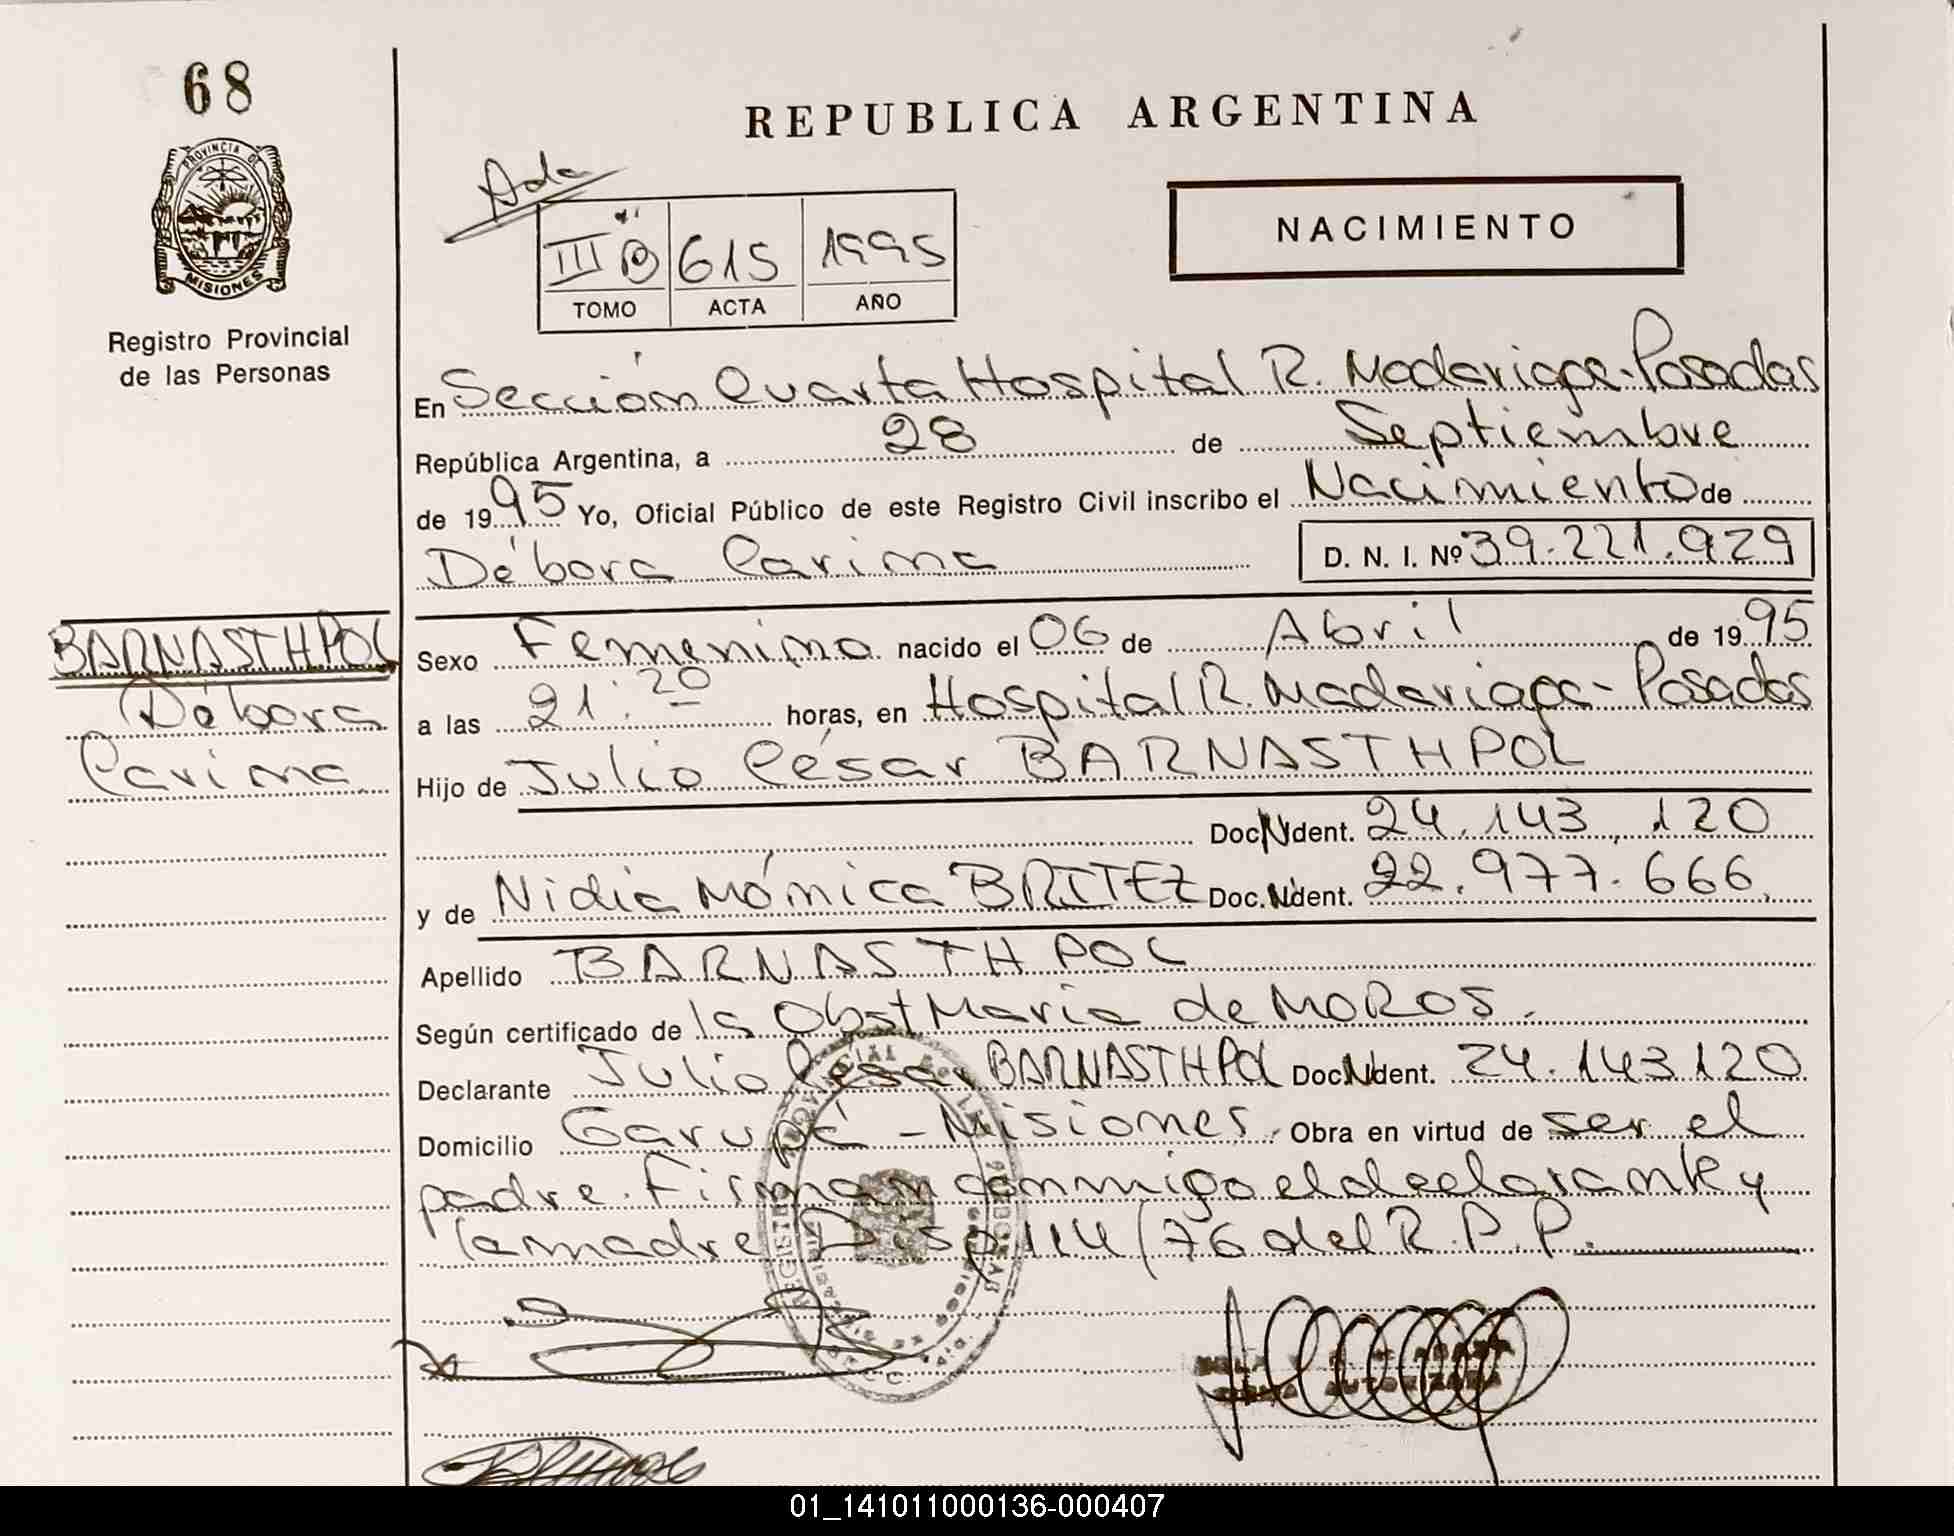 68
PROVINCIA DE
MISIONES
Registro Provincial
de las Personas
REPUBLICA ARGENTINA
NACIMIENTO
III B 615 1995
TOMO ACTA AÑO
En Sección Cuarta Hospital R. Madariaga-Posadas
República Argentina, a 28 de Septiembre
de 1995 Yo, Oficial Público de este Registro Civil inscribo el Nacimiento de
Débora Carina D. N. I. Nº 39.221.929
BARNASTHPOL
Débora
Carina
Sexo Femenino nacido el 06 de Abril de 1995
a las 21:20 horas, en Hospital R. Madariaga - Posadas
Hijo de Julio César BARNASTHPOL
Doc. Ident. 24.143.120
y de Nidia Mónica BRITEZ Doc. Ident. 22.977.666.
Apellido BARNASTHPOL
Según certificado de la Obst Maria de MOROS.
Declarante Julio César BARNASTHPOL Doc. Ident. 24.143.120
Domicilio Garupá - Misiones. Obra en virtud de ser el
padre. Firman conmigo el declarante y
la madre Disp 114/76 del R.P.P.
AUTORIZADA
01_141011000136-000407